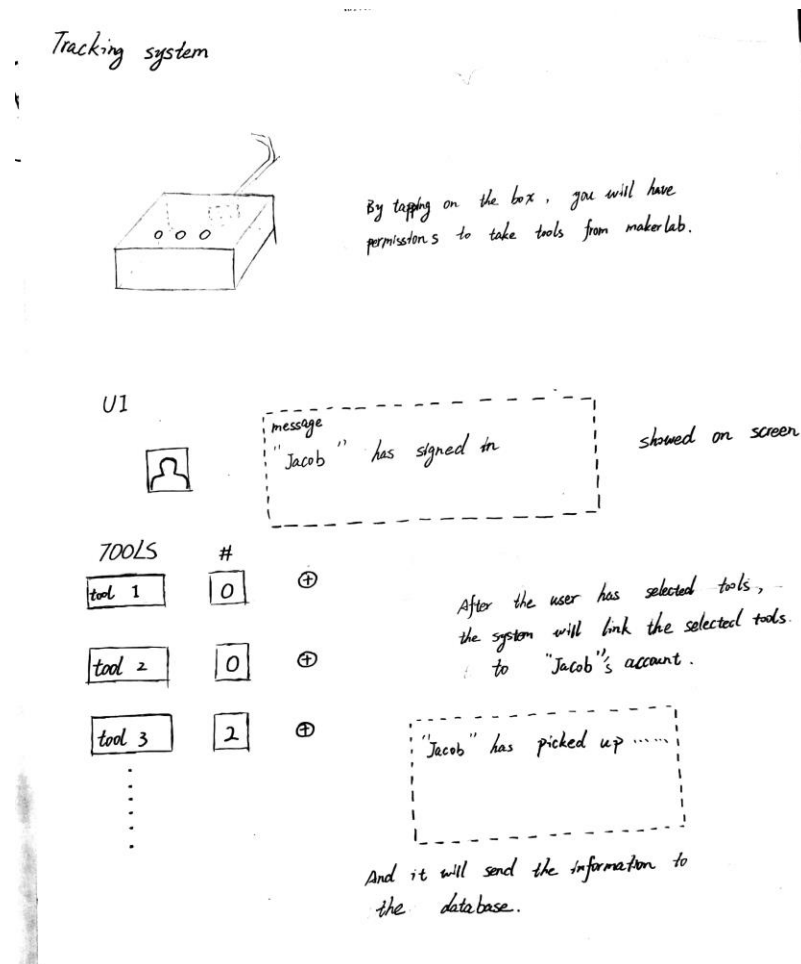 Tracking system
By tapping on the box, you will have
permissions to take tools from makerlab.
UI
message
"Jacob" has signed in
showed on screen
TOOLS #
tool 1 0 ⊕
After the user has selected tools,
the system will link the selected tools
to "Jacob"'s account.
tool 2 0 ⊕
tool 3 2 ⊕
"Jacob" has picked up ......
And it will send the information to
the database.